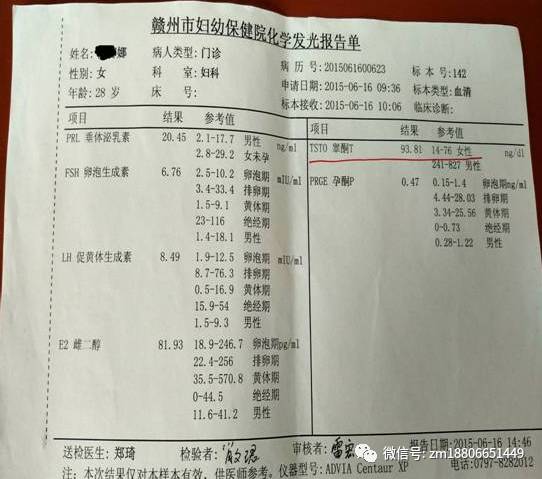 赣州市妇幼保健院化学发光报告单
姓名: 娜 病人类型: 门诊 病 历 号: 2015061600623 标 本 号: 142
性别: 女 科 室: 妇科 申请日期: 2015-06-16 09:36 标本类型: 血清
年龄: 28 岁 床 号: 标本接收: 2015-06-16 10:06 临床诊断:
项目 结果 参考值
PRL 垂体泌乳素 20.45 2.1-17.7 男性 ng/ml
2.8-29.2 女未孕
FSH 卵泡生成素 6.76 2.5-10.2 卵泡期 mIU/ml
3.4-33.4 排卵期
1.5-9.1 黄体期
23-116 绝经期
1.4-18.1 男性
LH 促黄体生成素 8.49 1.9-12.5 卵泡期 mIU/ml
8.7-76.3 排卵期
0.5-16.9 黄体期
15.9-54 绝经期
1.5-9.3 男性
E2 雌二醇 81.93 18.9-246.7 卵泡期pg/ml
22.4-256 排卵期
35.5-570.8 黄体期
0-44.5 绝经期
11.6-41.2 男性
项目 结果 参考值
TSTO 睾酮T 93.81 14-76 女性 ng/dl
241-827 男性
PRGE 孕酮P 0.47 0.15-1.4 卵泡期ng/ml
4.44-28.03 排卵期
3.34-25.56 黄体期
0-0.73 绝经期
0.28-1.22 男性
送检医生: 郑琦 检验者: 审核者: 报告日期: 2015-06-16 14:46
注: 本次结果仅对本样本有效, 供医师参考。仪器型号: ADVIA Centaur XP 电话:0797-8282012
微信号: zm18806651449